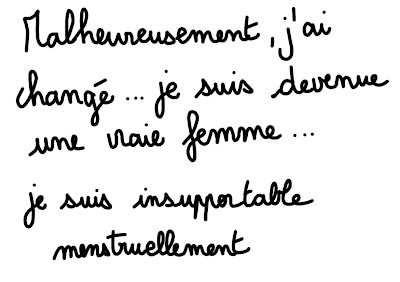 Malheureusement, j'ai
changé... je suis devenue
une vraie femme...
je suis insupportable
menstruellement